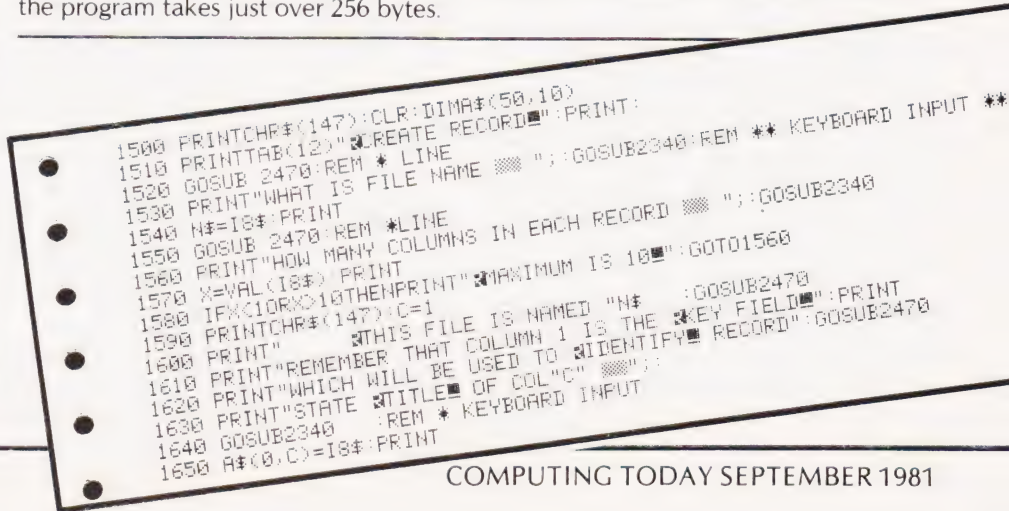 the program takes just over 256 bytes.
1500 PRINTCHR$(147):CLR:DIMA$(50,10)
1510 PRINTTAB(12)"CREATE RECORD":PRINT:
1520 GOSUB 2470:REM * LINE
1530 PRINT"WHAT IS FILE NAME ▒▒ ";:GOSUB2340:REM ** KEYBOARD INPUT **
1540 N$=I8$:PRINT
1550 GOSUB 2470:REM *LINE
1560 PRINT"HOW MANY COLUMNS IN EACH RECORD ▒▒ ";:GOSUB2340
1570 X=VAL(I8$):PRINT
1580 IFX<1ORX>10THENPRINT"MAXIMUM IS 10":GOTO1560
1590 PRINTCHR$(147):C=1
1600 PRINT" THIS FILE IS NAMED "N$ :GOSUB2470
1610 PRINT"REMEMBER THAT COLUMN 1 IS THE KEY FIELD":PRINT
1620 PRINT"WHICH WILL BE USED TO IDENTIFY RECORD":GOSUB2470
1630 PRINT"STATE TITLE OF COL"C" ▒▒";:
1640 GOSUB2340 :REM * KEYBOARD INPUT
1650 A$(0,C)=I8$:PRINT
COMPUTING TODAY SEPTEMBER 1981